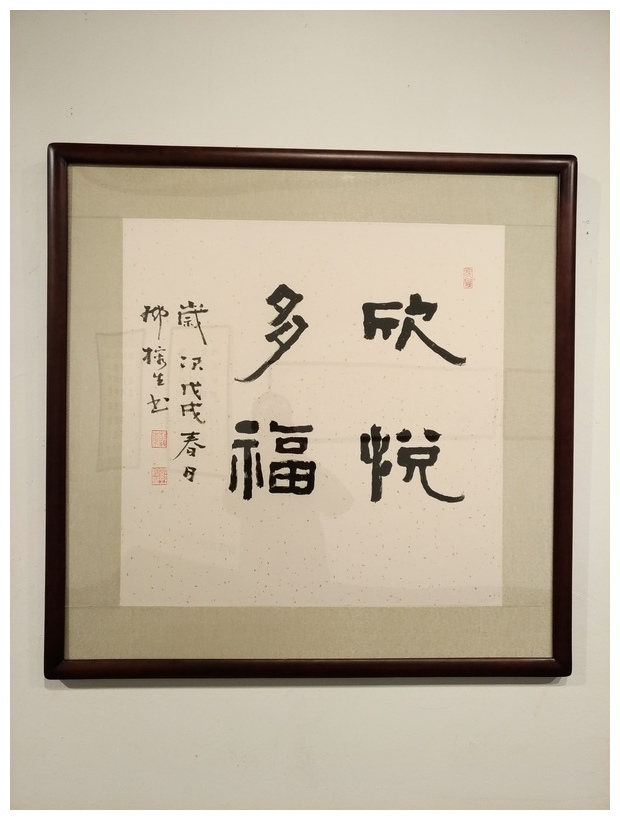 欣悦
多福
歲次戊戌春日
柳橋生书